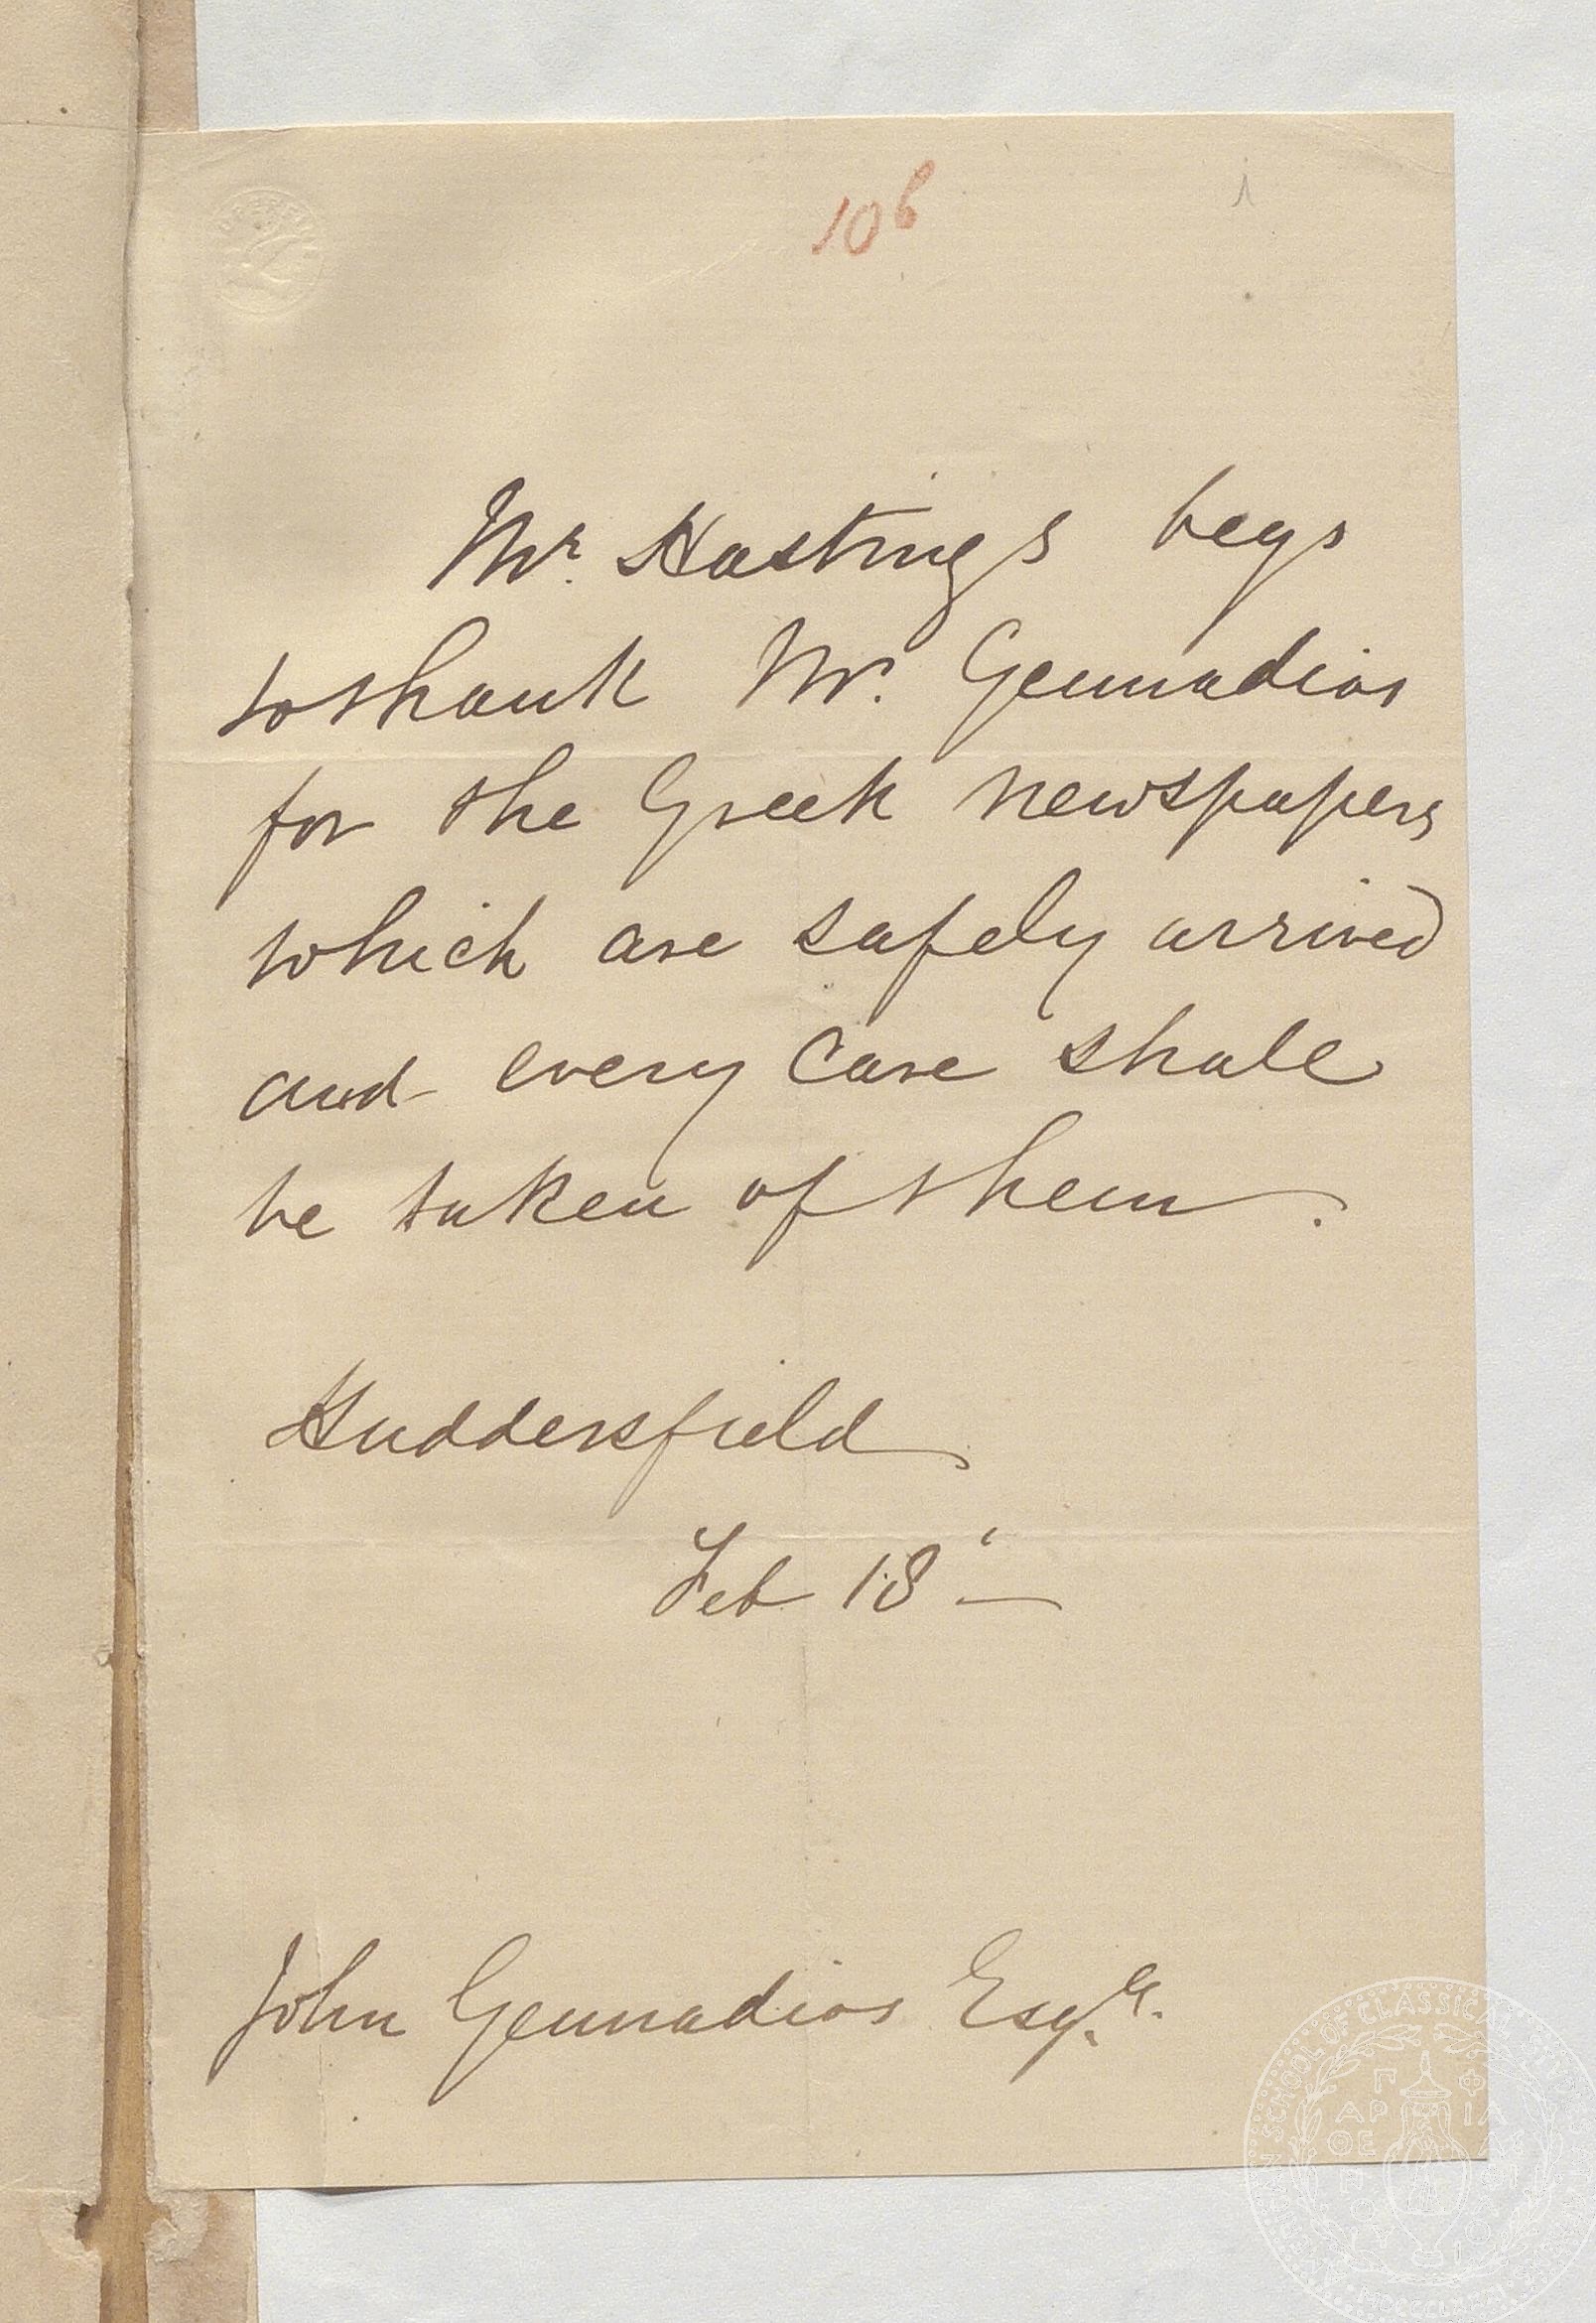 10b
Mr. Hastings begs
to thank Mr. Gennadios
for the Greek newspapers
which are safely arrived
and every care shall
be taken of them.
Huddersfield
Feb 18
John Gennadios Esqr.
SCHOOL OF CLASSICAL